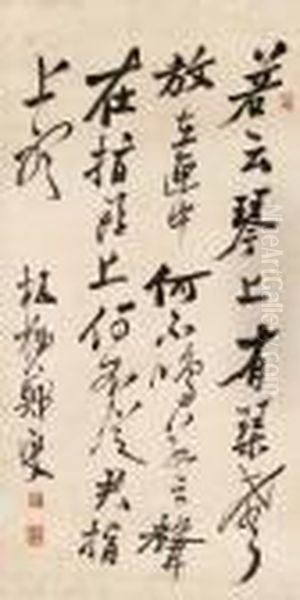 若云琴上有琴聲
放在匣中何不鳴若云聲
在指頭上何不於君指
上聽
板橋鄭燮